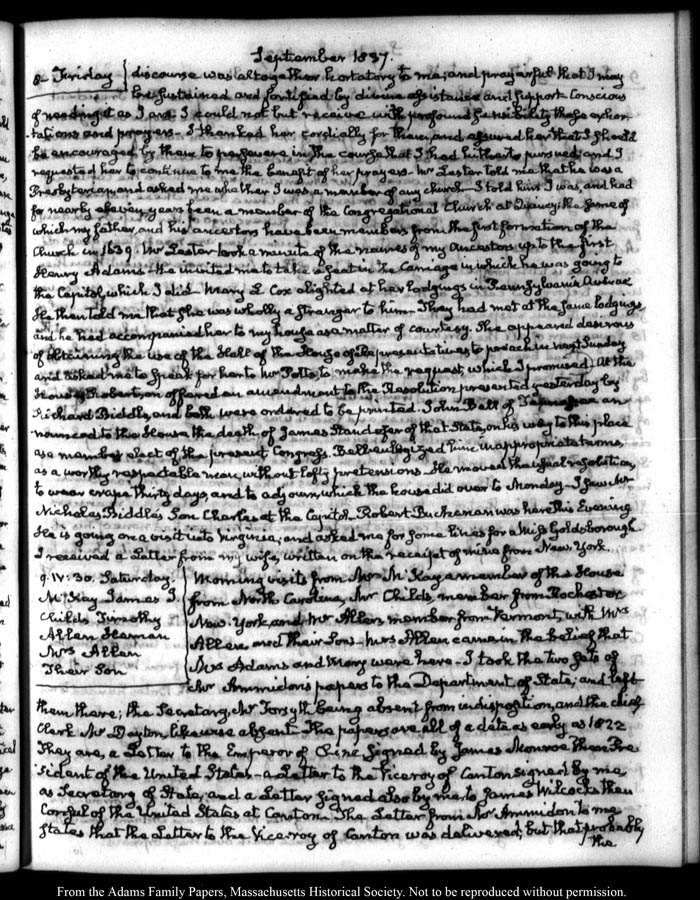 September 1837.
8. Friday } discourse was altogether hortatory to me; and prayerful that I may
be sustained and fortified by divine assistance and support. Conscious
of needing it as I am I could not but receive with profound sensibility these exhor-
tations and prayers. I thanked her cordially for them, and assured her that I should
be encouraged by them to persevere in the course that I had hitherto pursued; and I
requested her to continue to me the benefit of her prayers. Mr Lester told me that he was a
Presbyterian, and asked me whether I was a member of any church. I told him I was, and had
for nearly eleven years been a member of the Congregational Church at Quincy; the same of
which my father, and his ancestors have been members from the first formation of the
Church in 1639. Mr Lester took a minute of the names of my Ancestors up to the first
Henry Adams. He invited me to take a seat in the Carriage in which he was going to
the Capitol, which I did. Mary L Cox alighted at her lodgings in Pennsylvania Avenue
He then told me that she was wholly a stranger to him. They had met at the same lodgings
and he had accompanied her to my house as a matter of courtesy. She appeared desirous
of obtaining the use of the Hall of the House of Representatives to preach in next Sunday
and asked me to speak for her to Mr Polk, to make the request, which I promised. At the
House Robertson offered an amendment to the Resolution presented yesterday by
Richard Biddle, and both were ordered to be printed. John Bell of Tennessee an-
nounced to the House the death of James Standefer of that State, on his way to this place
as a member elect of the present Congress. Bell eulogized him in appropriate terms,
as a worthy respectable man, without lofty pretensions. He moved the usual resolution,
to wear crape thirty days, and to adjourn, which the house did over to Monday. I saw Mr
Nicholas Biddle's Son Charles at the Capitol. Robert Buchanan was here this Evening
He is going on a visit into Virginia, and asked me for some lines for a Miss Goldsborough
I received a Letter from my wife, written on the receipt of mine from New York.
9. IV:30. Saturday. } Morning visits from Mr McKay a member of the House
McKay James I. from North Carolina, Mr Childs, member from Rochester
Childs Timothy New-York, and Mr Allen member from Vermont, with Mrs
Allen Heman Allen and their Son. Mrs Allen came in the belief that
Mrs Allen Mrs Adams and Mary were here. I took the two sets of
Their Son Mr Ammidon's papers to the Department of State, and left
them there; the Secretary, Mr Forsyth being absent from indisposition, and the chief
Clerk Mr Dayton, likewise absent. The papers are all of a date as early as 1822
They are, a Letter to the Emperor of China signed by James Monroe then Pre-
sident of the United States—a Letter to the Viceroy of Canton signed by me,
as Secretary of State, and a Letter signed also by me to James Wilcocks then
Consul of the United States at Canton. The Letter from Mr Ammidon to me
states that the Letter to the Vice-roy of Canton was delivered; but that probably
the
From the Adams Family Papers, Massachusetts Historical Society. Not to be reproduced without permission.